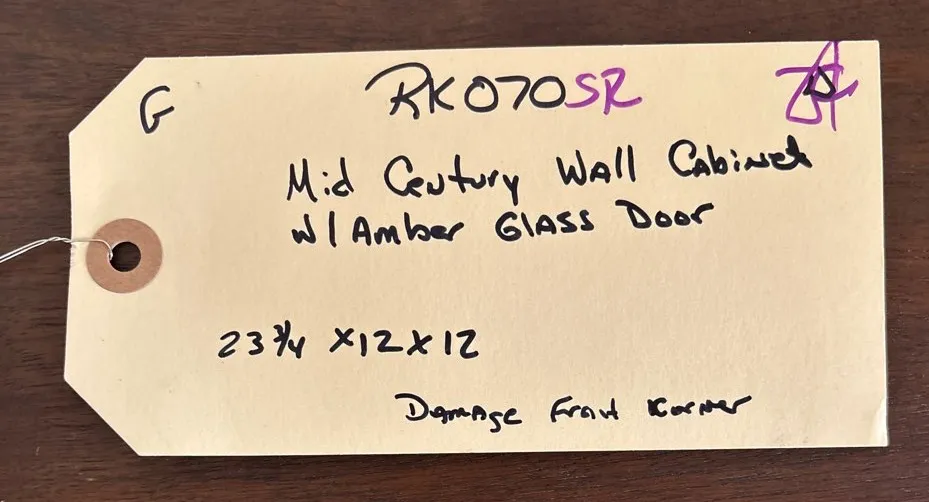 G
RK070SR
Mid Century Wall Cabinet
w/ Amber Glass Door
23 3/4 x12x12
Damage Front Korner